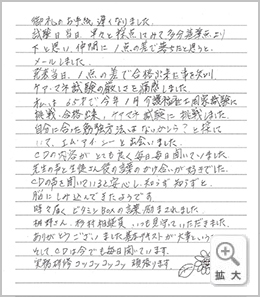 御礼のお手紙 遅くなりました。
試験日当日 早々と採点にみて 多分
下と思い、仲間に 1点の差で落ちたと思うと
メールしました。
発表当日、1点の差で合格出来た事を知り
ケアマネ試験の厳しさを痛感しました。
私は 65才で 今年1月 介護福祉士国家試験に
挑戦、合格出来、ケアマネ試験に挑戦しました。
自分に合った勉強方法はないかしら?と探して
いて、エム・アイ・シーと出会いました。
CDの内容がとても良く毎日毎日聞いていました。
先生の声と生徒さん役の言葉のかけ合いが好きでした。
CDの声を聞いていると安心し、知らず知らずと
脳にしみ込んできたようです。
時々届くビタミンBOXの言葉励まされました。
相絆さん、杉村相絆員 いつも見守っていただきました。
ありがとうございました 基本テキストが大事という
そしてCDは今でも毎日聞いています。
実務研修コツコツコツコツ 頑張ります。
拡大